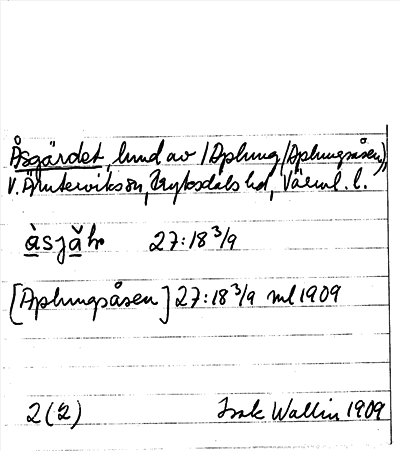 Åsgärdet, lund av /Aplung /Aplungsåsen/,
V. Ämterviks sn, Fryksdals hd, Värml. l.
àsjǎr 27:18 3/9
[Aplungsåsen] 27:18 3/9 ml 1909
2(2) Isak Wallin 1909